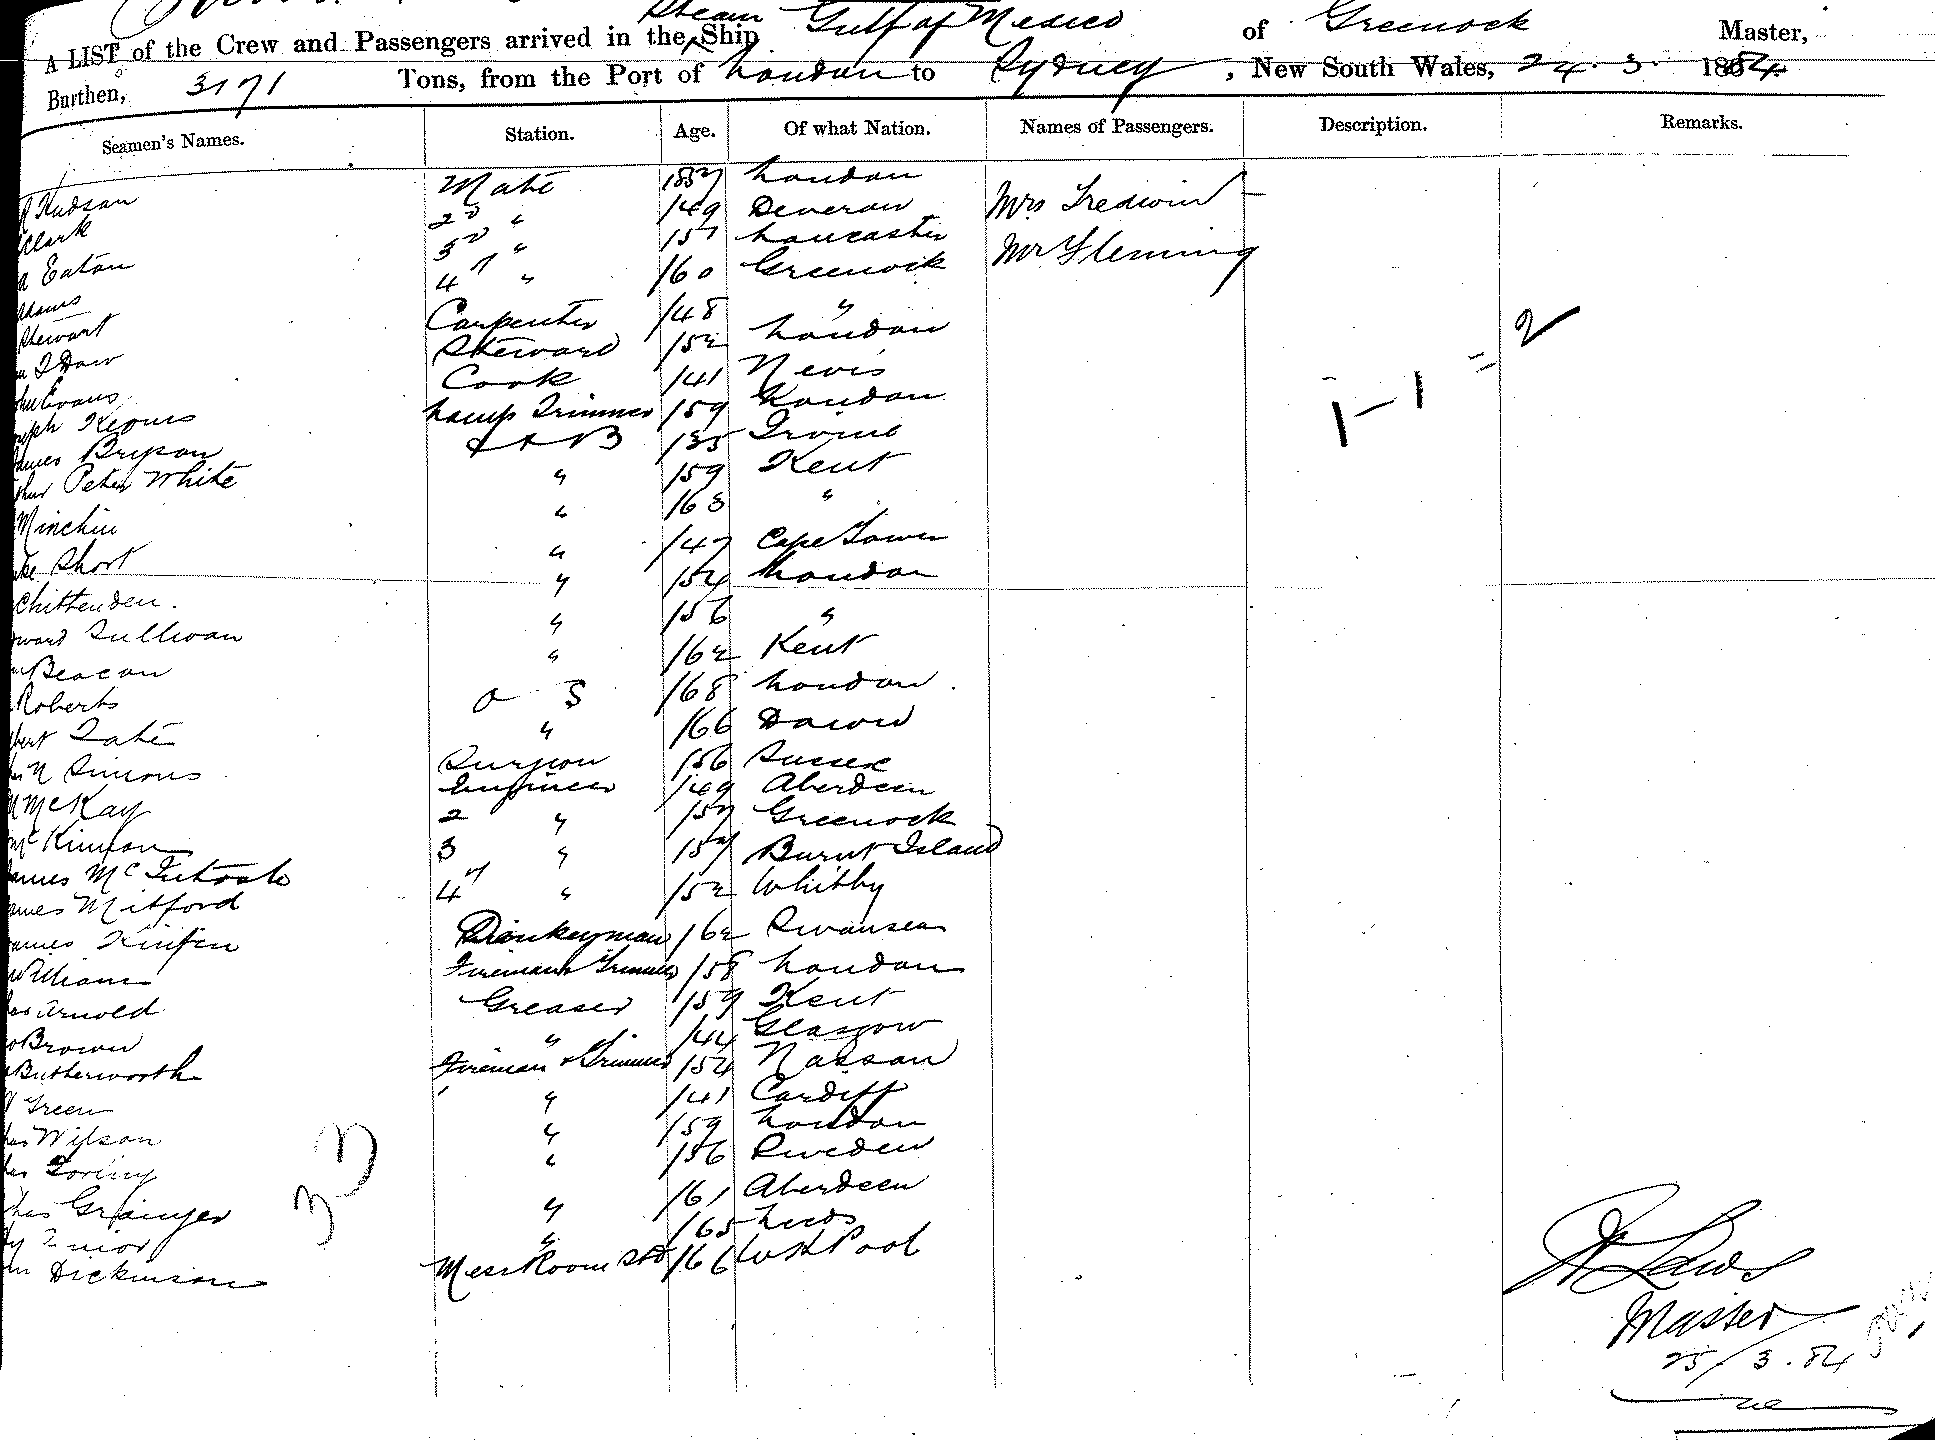 Steam
A LIST of the Crew and Passengers arrived in the Ship Gulf of Mexico of Greenock Master,
Burthen, 3171 Tons, from the Port of London to Sydney, New South Wales, 24.3.1884
Seamen's Names. Station. Age. Of what Nation. Names of Passengers. Description. Remarks.
Hudson Mate 1857 London Mrs Tredwin
Clark 2d " /49 Deveron
Eaton 3d " /57 Lancaster Mr Fleming
Adams 4th " /60 Greenock
Stewart Carpenter /48 "
Daw Steward /52 London
Evans Cook /41 Nevis
Lamp Trimmer /59 London
James Bryson A B /35 Irvine
Peter White " /59 Kent
Minchin " /63 "
Short " /47 Cape Town
Chittenden. " /54 London
Sullivan " /56 "
Beacon " /62 Kent
Roberts O S /68 London
Tate " /66 Down
Simons Surgeon /56 Sussex
McKay Engineer /49 Aberdeen
McKinnon 2 " /57 Greenock
James Mc 3 " /57 Burnt Island
James Mitford 4th " /52 Whitby
James Donkeyman /62 Swansea
William Fireman & Trimmer /58 London
Arnold Greaser /59 Kent
Brown " /44 Glasgow
Butterworth Fireman & Trimmer /54 Nassau
Green " /41 Cardiff
Wilson " /59 London
" /56 Sweden
Grainger " /61 Aberdeen
" /65 Leeds
Dickinson Mess Room Std /66 W H Pool
2
1 - 1
= 2
33
Laws
Master
25/3.84